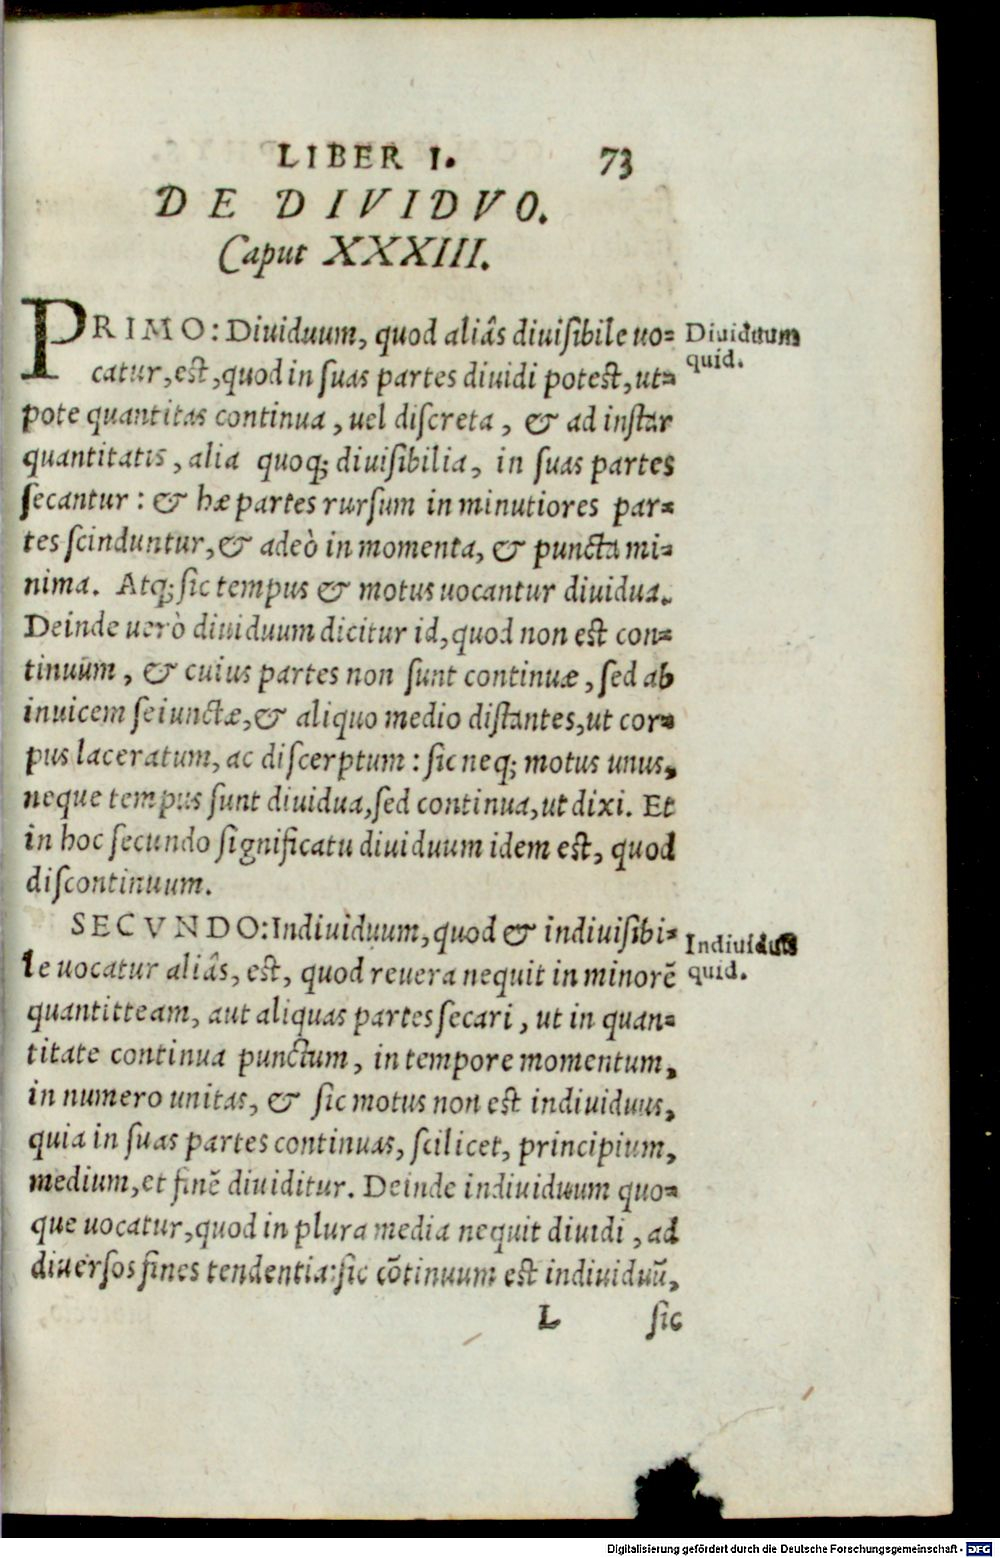 LIBER I. 73
DE DIVIDVO.
Caput XXXIII.
PRIMO: Diuiduum, quod aliâs diuisibile uo- Diuiduum
catur, est, quod in suas partes diuidi potest, ut- quid.
pote quantitas continua, uel discreta, & ad instar
quantitatis, alia quoq; diuisibilia, in suas partes
secantur: & hæ partes rursum in minutiores par-
tes scinduntur, & adeò in momenta, & puncta mi-
nima. Atq; sic tempus & motus uocantur diuidua.
Deinde uerò diuiduum dicitur id, quod non est con-
tinuum, & cuius partes non sunt continuæ, sed ab
inuicem seiunctæ, & aliquo medio distantes, ut cor-
pus laceratum, ac discerptum: sic neq; motus unus,
neque tempus sunt diuidua, sed continua, ut dixi. Et
in hoc secundo significatu diuiduum idem est, quod
discontinuum.
SECVNDO: Indiuiduum, quod & indiuisibi- Indiuiduū
le uocatur aliâs, est, quod reuera nequit in minorē quid.
quantitteam, aut aliquas partes secari, ut in quan-
titate continua punctum, in tempore momentum,
in numero unitas, & sic motus non est indiuiduus,
quia in suas partes continuas, scilicet, principium,
medium, et finē diuiditur. Deinde indiuiduum quo-
que uocatur, quod in plura media nequit diuidi, ad
diuersos fines tendentia: sic cōtinuum est indiuiduū,
L sic
Digitalisierung gefördert durch die Deutsche Forschungsgemeinschaft - DFG